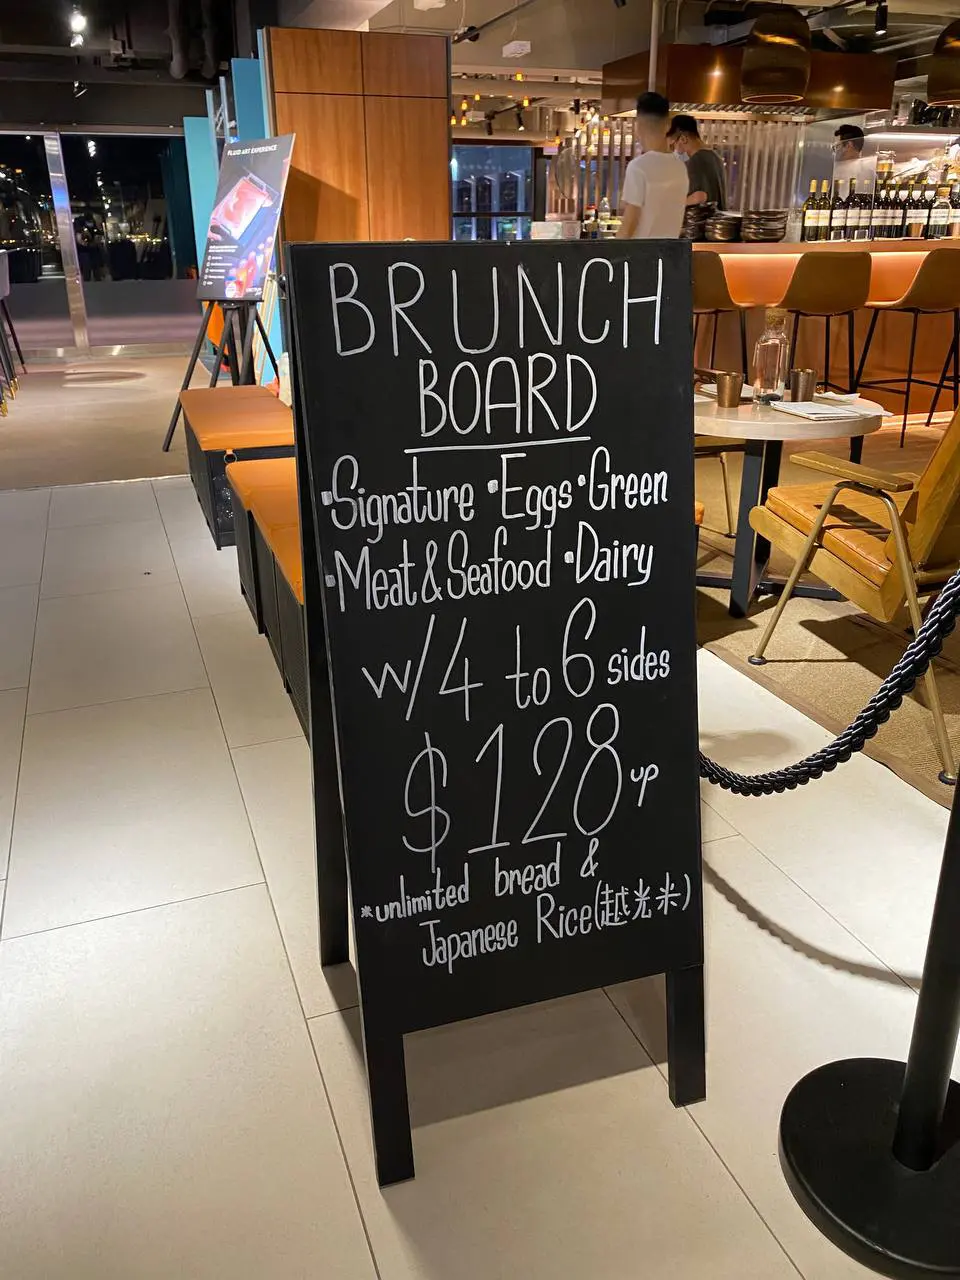 FLUID ART EXPERIENCE
BRUNCH
BOARD
·Signature ·Eggs ·Green
·Meat & Seafood ·Dairy
w/ 4 to 6 sides
$128 up
*unlimited bread &
Japanese Rice (越光米)